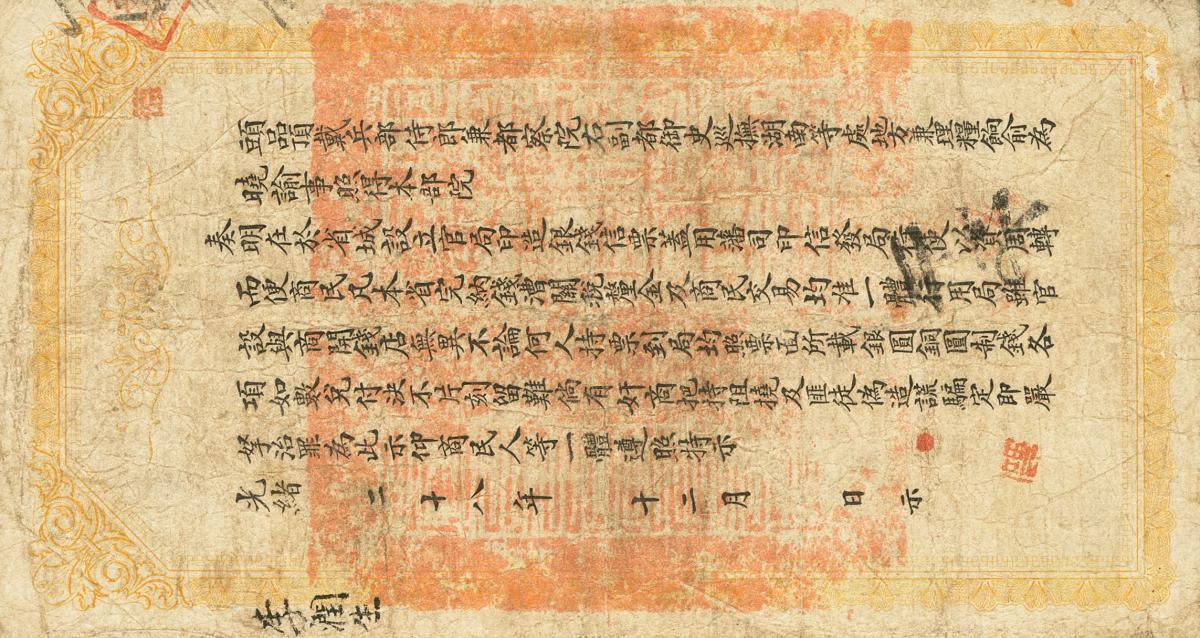 頭品頂戴兵部侍郎兼都察院右副都御史巡撫湖南等處地方兼理糧餉俞為
曉諭事照得本部院
奏明在於省城設立官局印造銀錢信票蓋用藩司印信發局 使以資周轉
而便商民凡本省完納錢漕關稅釐金及商民交易均准一體行用局雖官
設與商開錢店無異不論何人持票到局均照票面所載銀圓銅圓制錢各
項如數兌付決不片刻留難倘有奸商把持阻撓及匪徒偽造謊騙定即嚴
拏治罪為此示仰商民人等一體遵照特示
光緒二十八年十二月 日示
李潤生